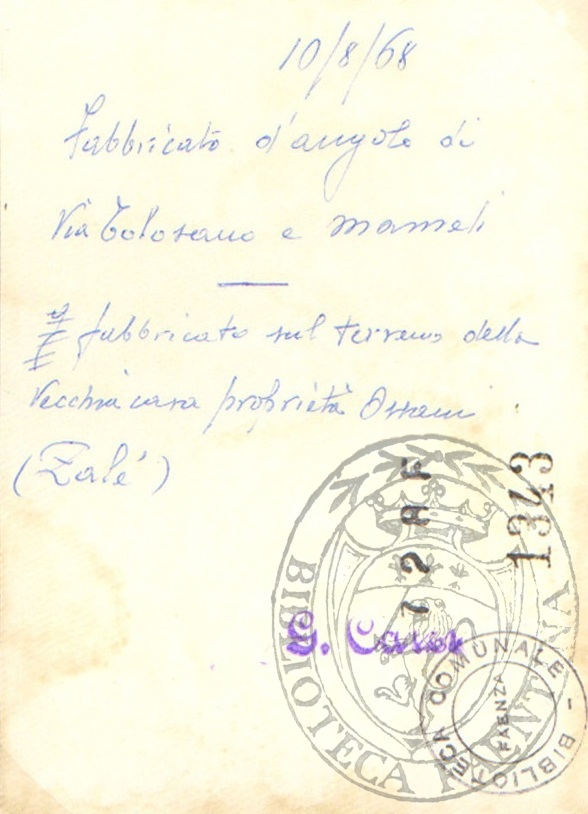 10/8/68
Fabbricato d'angolo di
Via Tolosano e Mameli
fabbricato sul terreno della
Vecchia casa proprietà Ossani
(Zalé)
1343
72AF
BIBLIOTECA FAENTINA
BIBLIOTECA COMUNALE -
FAENZA